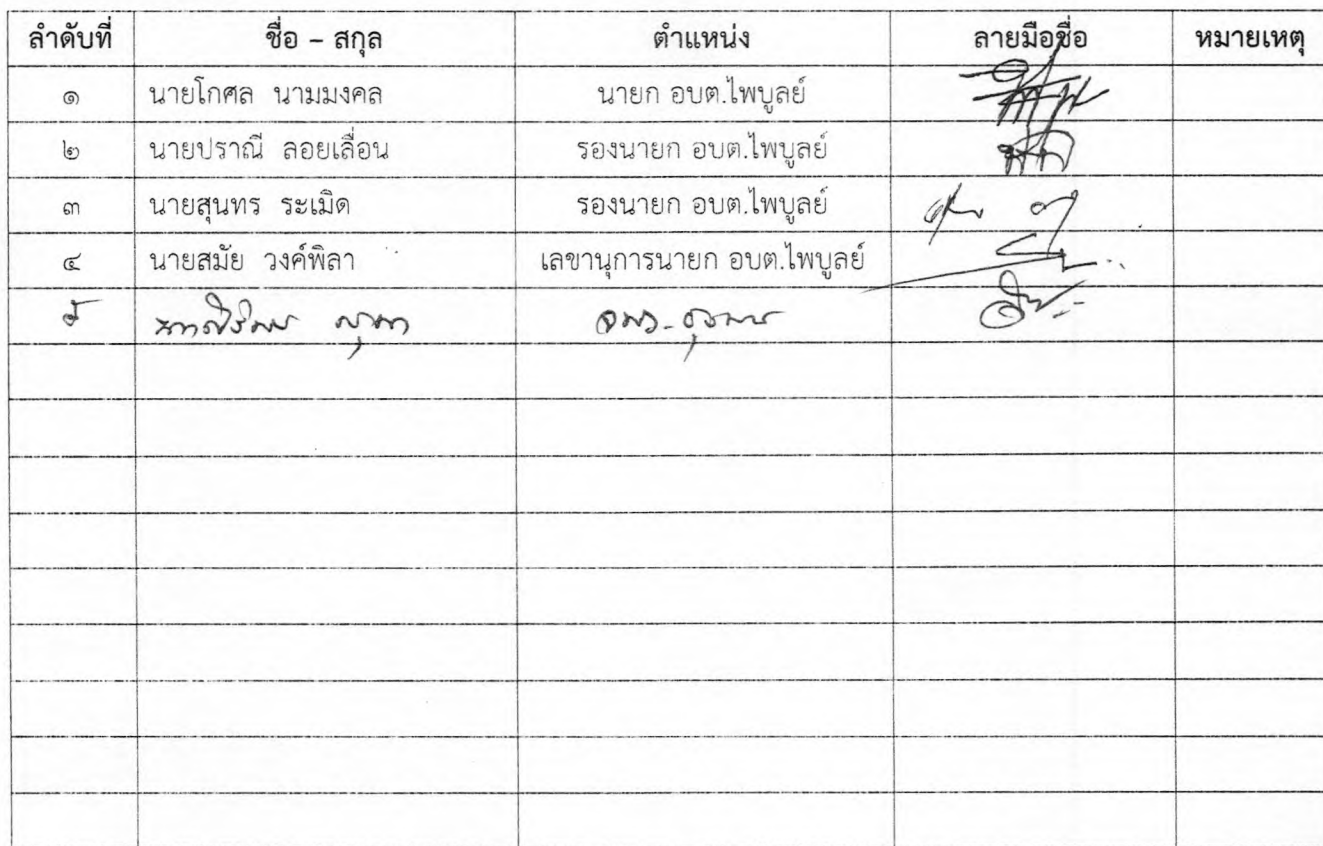 ลำดับที่ ชื่อ – สกุล ตำแหน่ง ลายมือชื่อ หมายเหตุ
๑ นายโกศล นามมงคล นายก อบต.ไพบูลย์
๒ นายปราณี ลอยเลื่อน รองนายก อบต.ไพบูลย์
๓ นายสุนทร ระเมิด รองนายก อบต.ไพบูลย์
๔ นายสมัย วงค์พิลา เลขานุการนายก อบต.ไพบูลย์
๕